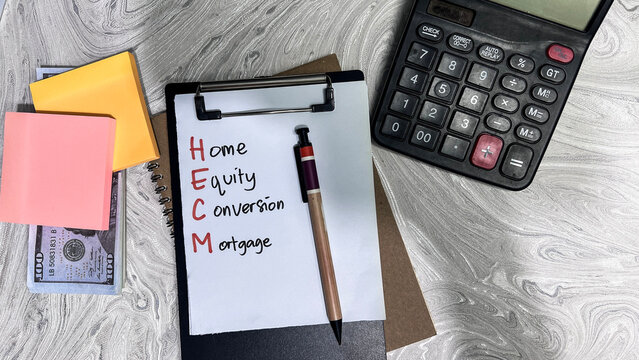 Home
Equity
Conversion
Mortgage
CHECK CORRECT AUTO REPLAY % GT
7 8 9 ÷ MU
4 5 6 × M-
1 2 3 - M+
0 00 . + =
100
100